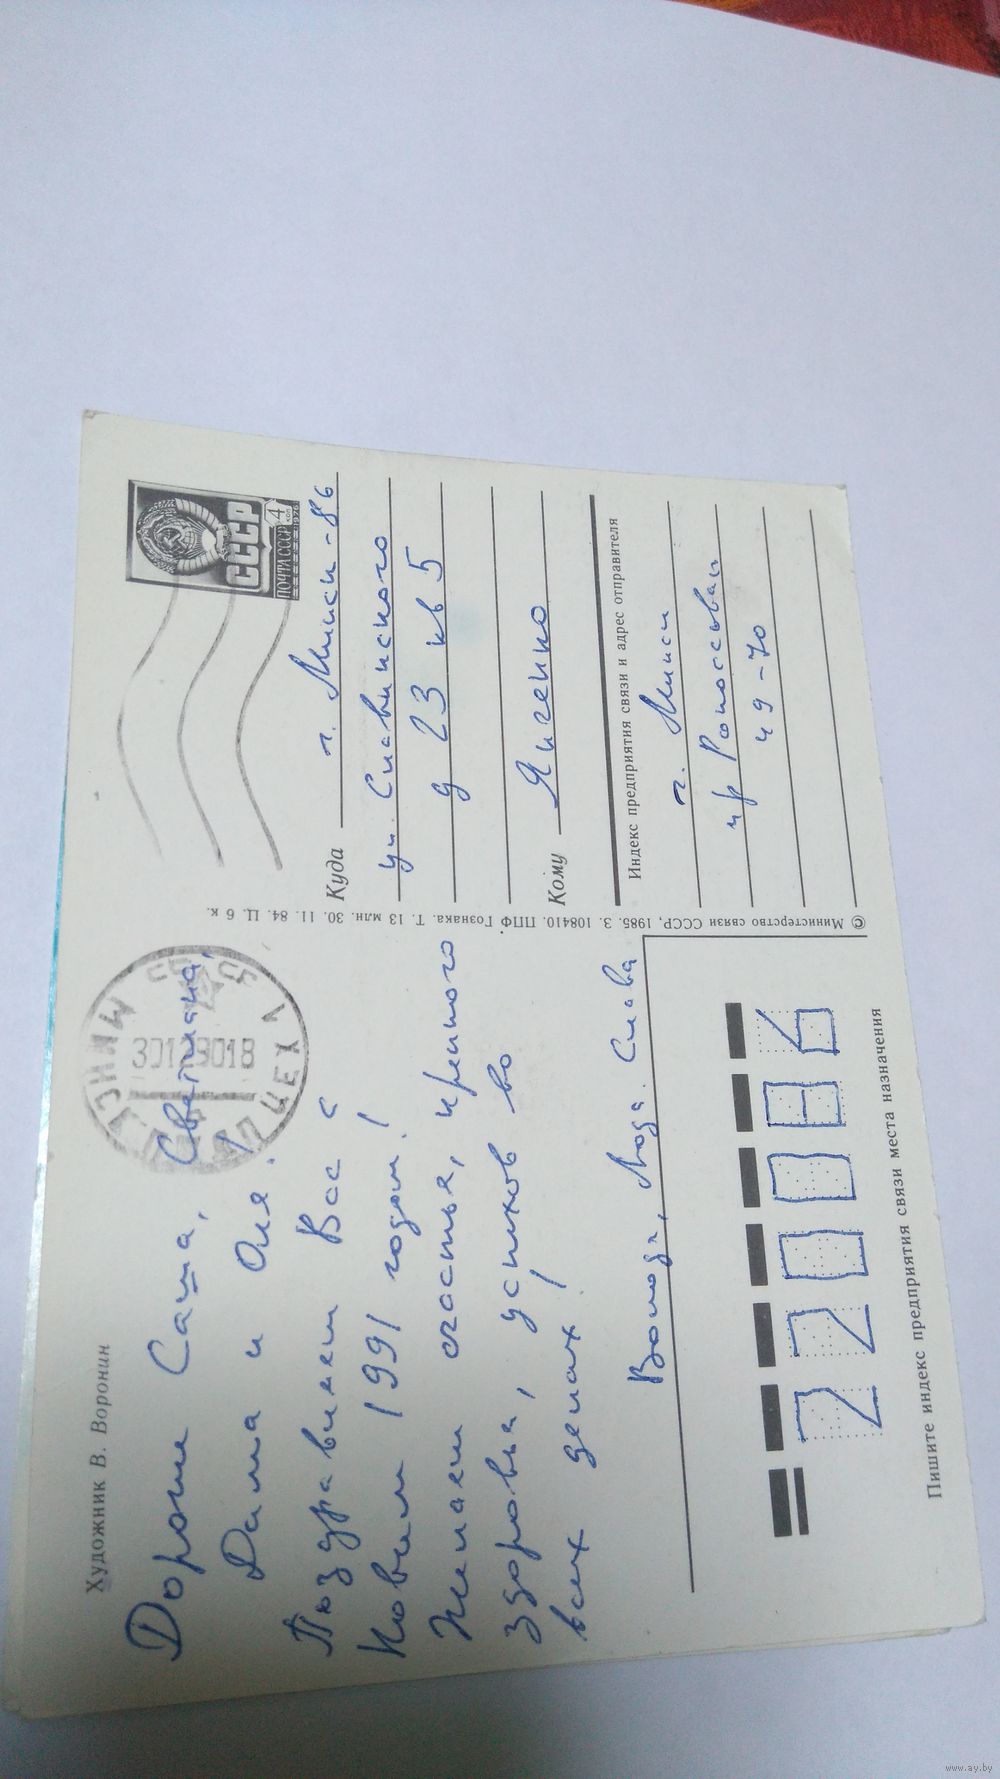 Художник В. Воронин
Дорогие Саша, Светлана,
Дима и Оля!
Поздравляем Вас с
Новым 1991 годом!
Желаем счастья, крепкого
здоровья, успехов во
всех делах!
Володя, Люда. Слава
220086
Пишите индекс предприятия связи места назначения
© Министерство связи СССР, 1985. З. 108410. ППФ Гознака. Т. 13 млн. 30. 11. 84. Ц. 6 к.
МИНСК
30129018
ЦЕХ
ПОЧТА СССР
4
КОП
1976
СССР
Куда г. Минск-86
ул. Славинского
д 23 кв 5
Кому Янченко
Индекс предприятия связи и адрес отправителя
г. Минск
пр Рокоссовск
49-70
www.ay.by